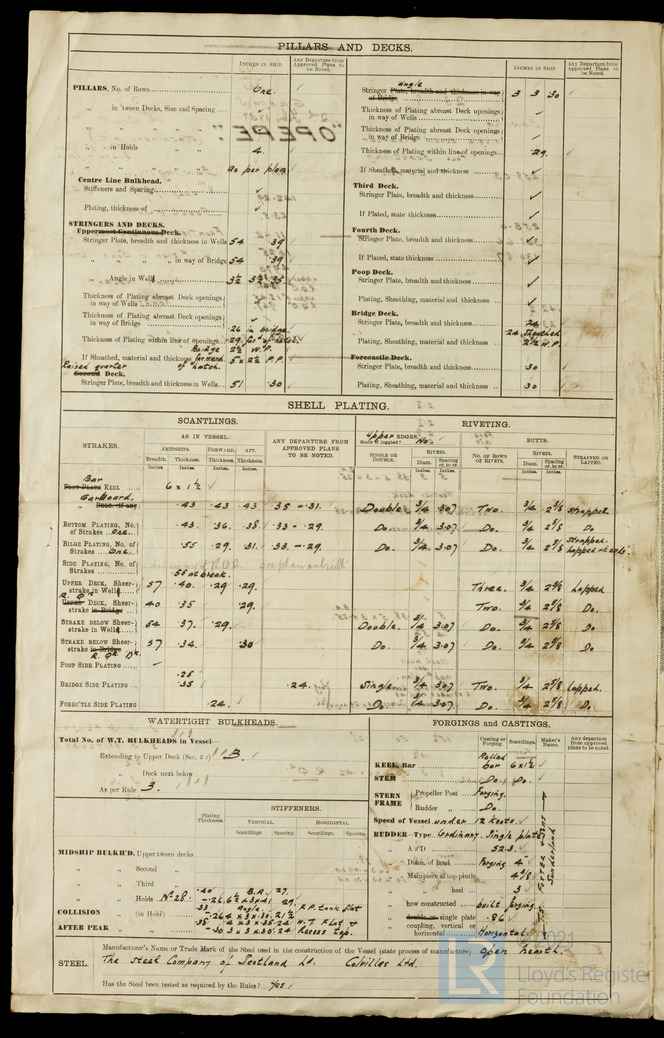 PILLARS AND DECKS.
INCHES IN SHIP.
Any Departure from Approved Plans to be Noted.
PILLARS, No. of Rows One.
„ in 'tween Decks, Size and Spacing
"OPEPE"
„ in Holds 4.
as per plan
Centre Line Bulkhead.
Stiffeners and Spacing
Plating, thickness of
STRINGERS AND DECKS.
Uppermost Continuous Deck.
Stringer Plate, breadth and thickness in Wells 54 .39
„ „ „ „ in way of Bridge 54 .39
„ Angle in Wells 3½ 3½ .35
Thickness of Plating abreast Deck openings in way of Wells
Thickness of Plating abreast Deck openings in way of Bridge
.26 in bridge
Thickness of Plating within line of openings .29 for'd of hatch
Bridge 2½ W.P.
If Sheathed, material and thickness forward of hatch. 5 x 2½ P.P.
Raised quarter
Second Deck.
Stringer Plate, breadth and thickness in Wells 51 .30
INCHES IN SHIP.
Any Departure from Approved Plans to be Noted.
angle
Stringer Plate, breadth and thickness in way of Bridge 3 3 30
Thickness of Plating abreast Deck openings in way of Wells
Thickness of Plating abreast Deck openings in way of Bridge
Thickness of Plating within line of openings .29.
If Sheathed, material and thickness
Third Deck.
Stringer Plate, breadth and thickness
If Plated, state thickness
Fourth Deck.
Stringer Plate, breadth and thickness
If Plated, state thickness
Poop Deck.
Stringer Plate, breadth and thickness
Plating, Sheathing, material and thickness
Bridge Deck.
Stringer Plate, breadth and thickness 24.
Plating, Sheathing, material and thickness .24 Sheathed 2½ W.P.
Forecastle Deck.
Stringer Plate, breadth and thickness 30
Plating, Sheathing, material and thickness .30
SHELL PLATING.
SCANTLINGS.
RIVETING.
STRAKES.
AS IN VESSEL.
AMIDSHIPS.
FORWARD.
AFT.
Breadth.
Thickness.
Thickness.
Thickness.
Inches
Inches.
Inches.
Inches.
ANY DEPARTURE FROM APPROVED PLANS TO BE NOTED.
Upper EDGES.
State if joggled? No.
BUTTS.
SINGLE OR DOUBLE.
RIVETS.
Diam.
Spacing cr. to cr.
NO. OF ROWS OF RIVETS.
RIVETS.
Diam.
Spacing cr. to cr.
STRAPPED OR LAPPED.
Bar
Flat Plate KEEL 6 x 1½
Garboard.
„ Dbg. if any .43 .43 .43 .35 - .31. Double. ¾ 3.07 Two. ¾ 2⅝ strapped
BOTTOM PLATING, No. of Strakes One. .43. .36. .38 .33 - .29. Do. ¾ 3.07 Do. ¾ 2⅝ Do
BILGE PLATING, No. of Strakes One. .55 .29. .31. .33 - .29. Do. ¾ 3.07 Do. ¾ 2⅝ strapped. lapped at ends.
SIDE PLATING, No. of Strakes
.55 at break.
UPPER DECK, Sheer-strake in Wells 57 .40. .29 .29. Three. ¾ 2⅝ Lapped
R. Qr.
Upper DECK, Sheer-strake in Bridge 40 .35 .29. Two. ¾ 2⅝ Do.
STRAKE BELOW Sheer-strake in Wells 54 .37. .29. Double. ¾ 3.07 Do. ¾ 2⅝ Do.
STRAKE BELOW Sheer-strake in Bridge 57 .34. .30 Do. ¾ 3.07 Do. ¾ 2⅝ Do
R. Qr. Dk
POOP SIDE PLATING
BRIDGE SIDE PLATING .25 .35 .24. Single. ¾ 3.07 Two. ¾ 2⅝ Lapped.
FOREC'TLE SIDE PLATING .24. Do. ¾ 3.07 Do. ¾ 2⅝ Do.
WATERTIGHT BULKHEADS.
Total No. of W.T. BULKHEADS in Vessel
Extending to Upper Deck (Sec. 3 c) 3.
„ Deck next below
As per Rule 3.
STIFFENERS.
Plating Thickness.
VERTICAL
HORIZONTAL
Scantlings.
Spacing
Scantlings.
Spacing
MIDSHIP BULKH'D, Upper tween decks
„ „ Second „
„ „ Third „
„ „ Holds No 28. .40 - .26. 6½ x 3 x 41 B.A. 27. 29.
COLLISION „ (in Hold) .33 - .26 4 x 3 x 30. 21½ F.P. tank flat
AFTER PEAK „ .35 - .30 3 x 3 x 30. 24 W.T. Flat & Recess top.
FORGINGS and CASTINGS.
Casting or Forging.
Scantlings.
Maker's Name.
Any departure from approved plans to be noted.
KEEL, Bar Rolled bar 6 x 1½
STEM Do. Do.
STERN FRAME
Propeller Post Forging.
Rudder „ Do.
Speed of Vessel under 12 knots.
RUDDER—Type Ordinary. Single plate
A x D 52.3.
Diam. of head Forging 4"
Mainpiece at top pintle 4⅛
„ heel 3
how constructed built forging.
double or single plate .86
coupling, vertical or horizontal Horizontal.
Forster & Sons Sunderland
STEEL.
Manufacturer's Name or Trade Mark of the Steel used in the construction of the Vessel (state process of manufacture) open hearth.
The Steel Company of Scotland Ld. Colvilles Ltd.
Has the Steel been tested as required by the Rules? yes.
2021
LR
Lloyd's Register
Foundation